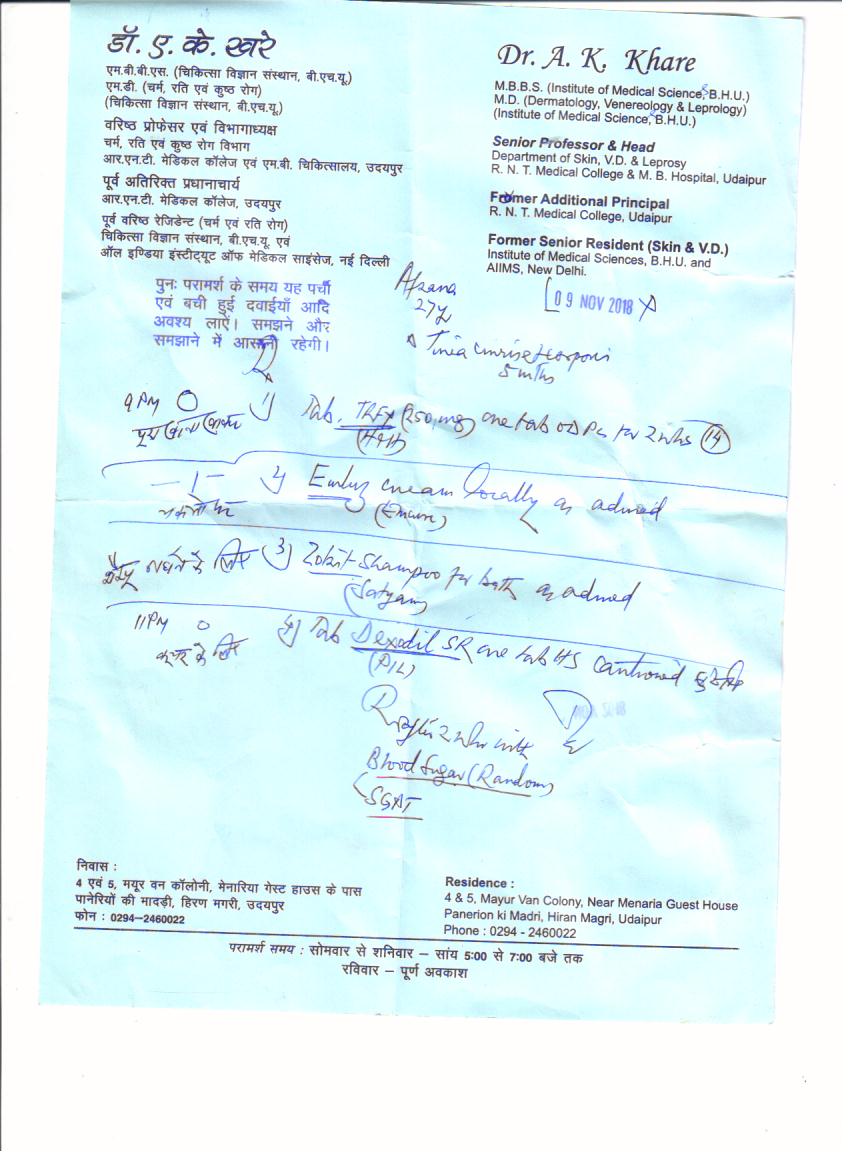 डॉ. ए. के. खरे
एम.बी.बी.एस. (चिकित्सा विज्ञान संस्थान, बी.एच.यू.)
एम.डी. (चर्म, रति एवं कुष्ठ रोग)
(चिकित्सा विज्ञान संस्थान, बी.एच.यू.)
वरिष्ठ प्रोफेसर एवं विभागाध्यक्ष
चर्म, रति एवं कुष्ठ रोग विभाग
आर.एन.टी. मेडिकल कॉलेज एवं एम.बी. चिकित्सालय, उदयपुर
पूर्व अतिरिक्त प्रधानाचार्य
आर.एन.टी. मेडिकल कॉलेज, उदयपुर
पूर्व वरिष्ठ रेजिडेन्ट (चर्म एवं रति रोग)
चिकित्सा विज्ञान संस्थान, बी.एच.यू. एवं
ऑल इण्डिया इंस्टीट्यूट ऑफ मेडिकल साइंसेज, नई दिल्ली
Dr. A. K. Khare
M.B.B.S. (Institute of Medical Sciences, B.H.U.)
M.D. (Dermatology, Venereology & Leprology)
(Institute of Medical Sciences, B.H.U.)
Senior Professor & Head
Department of Skin, V.D. & Leprosy
R. N. T. Medical College & M. B. Hospital, Udaipur
Former Additional Principal
R. N. T. Medical College, Udaipur
Former Senior Resident (Skin & V.D.)
Institute of Medical Sciences, B.H.U. and
AIIMS, New Delhi.
पुनः परामर्श के समय यह पर्ची
एवं बची हुई दवाईयाँ आदि
अवश्य लाऐं। समझने और
समझाने में आसानी रहेगी।
Afsana
27y
09 NOV 2018
Tinea
5 mths
9 PM 1) Tab. (250 mg) one tab OD PC for 2 wks (14)
-1- 2) cream locally as advised
3) Shampoo for bath as advised
(Satyam)
11 PM 4) Tab Dexodil SR one tab HS
R after 2 wks with
Blood Sugar (Random)
निवास :
4 एवं 5, मयूर वन कॉलोनी, मेनारिया गेस्ट हाउस के पास
पानेरियों की मादड़ी, हिरण मगरी, उदयपुर
फोन : 0294-2460022
Residence :
4 & 5, Mayur Van Colony, Near Menaria Guest House
Panerion ki Madri, Hiran Magri, Udaipur
Phone : 0294 - 2460022
परामर्श समय : सोमवार से शनिवार – सांय 5:00 से 7:00 बजे तक
रविवार – पूर्ण अवकाश